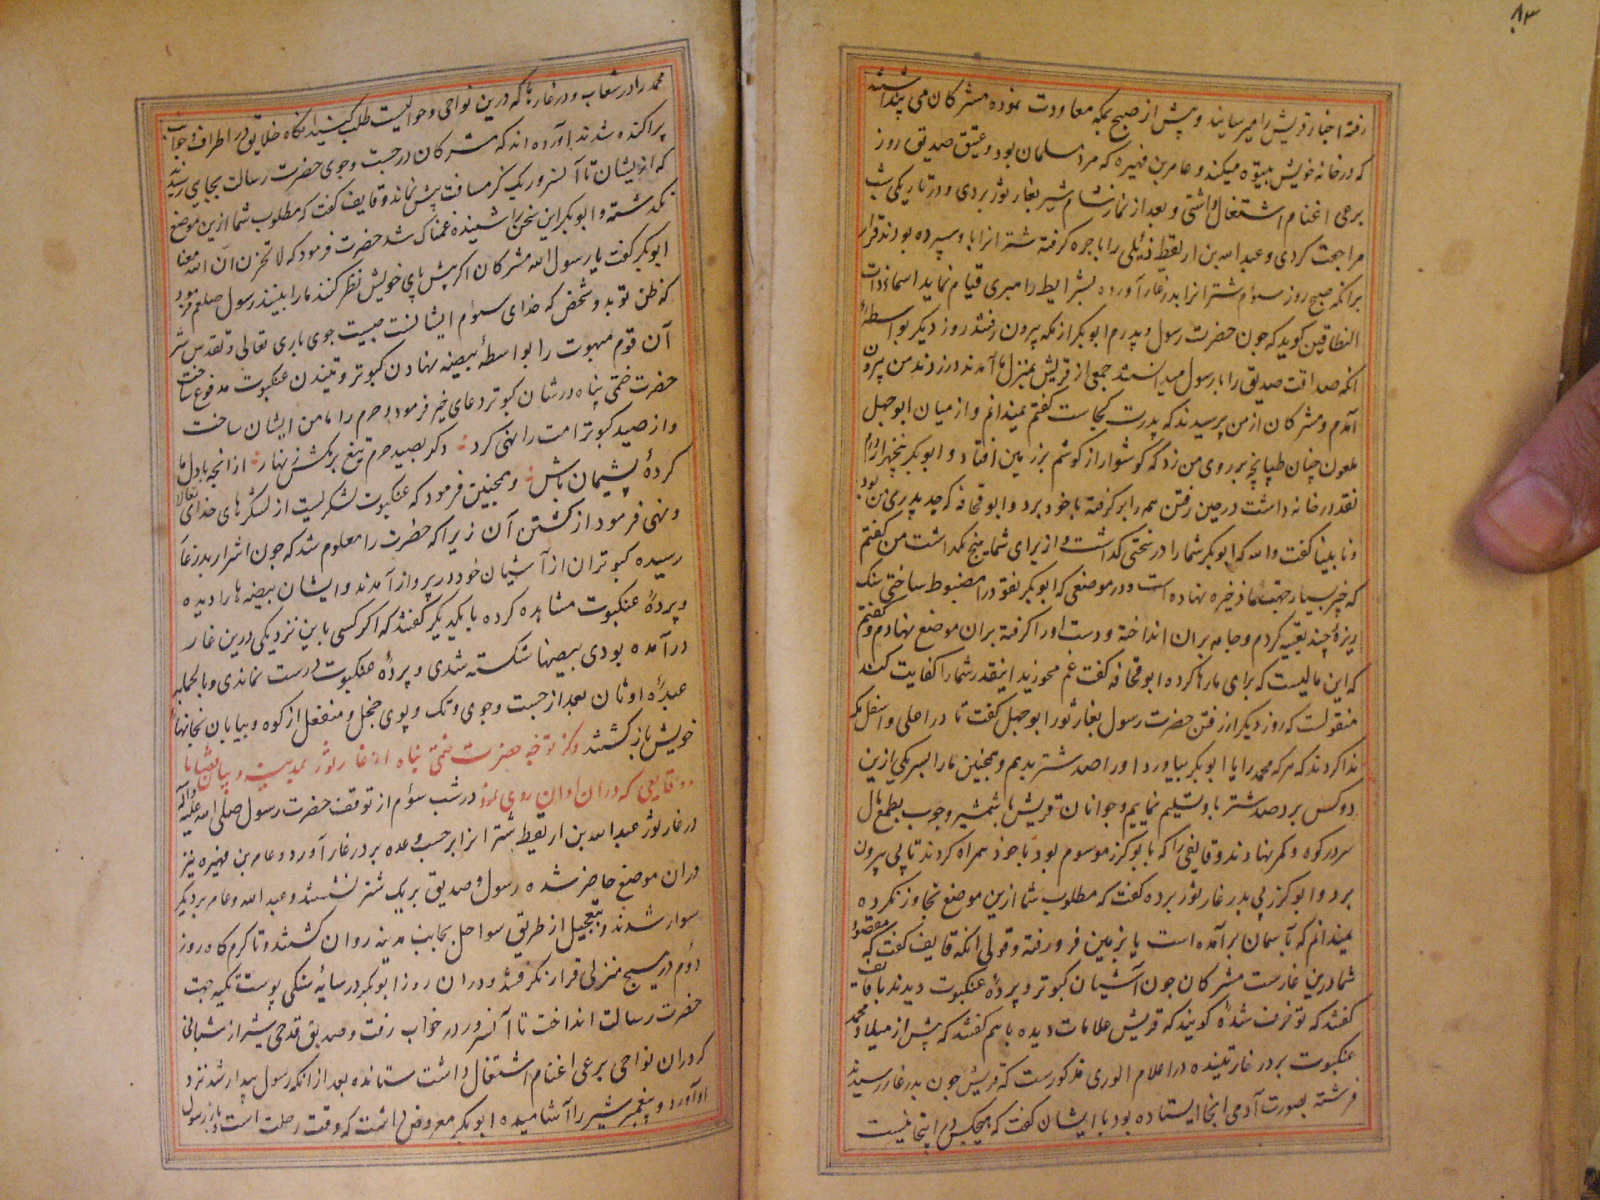 ۸۳
رفته اخبار قریش را میرسانید و پیش از صبح بمکه معاودت نموده مشرکان می پنداشتند
که در خانه خویش بیتوته میکند و عامر بن فهیره که مرد مسلمان بود و عتیق صدیق روز
برعی اغنام اشتغال داشتی و بعد از نماز شام شیر بغار ثور بردی و در تاریکی شب
مراجعت کردی و عبد الله بن اریقط دئلی را باجره گرفته شترانرا باو سپرده بودند قرار
برانکه صبح روز سوم شترانرا بدر غار آورده بشرایط رهبری قیام نماید اسماء ذات
النطاقین کوید که چون حضرت رسول و پدرم ابوبکر از مکه بیرون رفتند روز دیکر بواسطهٔ
انکه صداقت صدیق را با رسول میدانستند جمعی از قریش بمنزل ما آمدند در زدند من بیرون
آمدم و مشرکان از من پرسیدند که پدرت کجاست کفتم نمیدانم و از میان ابوجهل
ملعون چنان طپانچه بر روی من زد که کوشوار از کوشم بزمین افتاد و ابوبکر پنجهزار درم
نقد در خانه داشت در حین رفتن همه را برکرفته با خود برد و ابو قحافه که جد پدری من بود
و نابینا کفت والله که ابوبکر شما را در سختی کذاشت و از برای شما هیچ نکذاشت من کفتم
که خیر بسیار جهة ما ذخیره نهاده است و در موضعی که ابوبکر نقود را مضبوط ساختی سنک
ریزهٔ چند تعبیه کردم و جامه بران انداخته و دست او را کرفته بران موضع نهادم و کفتم
که این مالیست که برای ما رها کرده ابو قحافه کفت غم مخورید اینقدر شما را کفایت کند
منقولست که روز دیکر از رفتن حضرت رسول بغار ثور ابوجهل کفت تا در اعلی و اسفل مکه
ندا کردند که هرکه محمد را یا ابوبکر بیاورد او را صد شتر بدهیم و همچنین ما را بسر یکی ازین
دو کس برد صد شتر باو تسلیم نماییم و جوانان قریش با شمشیر و چوب بطمع مال
سر در کوه و کمر نهادند و قایفی را که بابو کرز موسوم بود با خود همراه کردند تا پی بیرون
برد و ابو کرز پی بدر غار ثور برده کفت که مطلوب شما ازین موضع تجاوز نکرده
نمیدانم که بآسمان برآمده است یا بزمین فرو رفته و قولی انکه قایف کفت که مقصود
شما درین غارست مشرکان چون آشیان کبوتر و پردهٔ عنکبوت دیدند با قایف
کفتند که تو خرف شدهٔ کویند که قریش علامات دیده باهم کفتند که پیش از میلاد محمد
عنکبوت بر در غار تنیده در اعلام الوری مذکورست که قریش چون بدر غار رسیدند
فرشته بصورت آدمی انجا ایستاده بود با ایشان کفت که هیچکس در اینجا نیست
محمد را در شعاب و در غارها که درین نواحی و حوالیست طلب کنید انکاه خلایق در اطراف و جوانب
پراکنده شدند آورده اند که مشرکان در جست وجوی حضرت رسالت بجایی رسیدند
که از ایشان تا آنسرور یک کز مسافت بیش نماند و قایف کفت که مطلوب شما ازین موضع
نکذشته و ابوبکر این سخن را شنیده غمناک شد حضرت فرمود که لا تحزن ان الله معنا
ابوبکر کفت یا رسول الله مشرکان اکر پیش پای خویش نظر کنند ما را ببینند رسول صلعم فرمود
که ظن تو بدو شخص که خدای سوم ایشانست چیست جوی باری تعالی و تقدس شر
آن قوم مبهوت را بواسطهٔ بیضه نهادن کبوتر و تنیدن عنکبوت مدفوع ساخت
حضرت ختمی پناه در شان کبوتر دعای خیر فرمود و حرم را مامن ایشان ساخت
و از صید کبوتر امت را نهی کرد دکر بصید حرم تیغ برمکش زنهار ازانچه با دل ما
کردهٔ پشیمان باش و همچنین فرمود که عنکبوت لشکریست از لشکرهای خدای تعالی
و نهی فرمود از کشتن آن زیرا که حضرت را معلوم شد که چون اشرار بدر غار
رسیده کبوتران از آشیان خود در پرواز آمدند و ایشان بیضه ها را دیده
و پردهٔ عنکبوت مشاهده کرده با یکدیکر کفتند که اکر کسی باین نزدیکی درین غار
درآمده بودی بیضها شکسته شدی و پردهٔ عنکبوت درست نماندی و بالجمله
عبدهٔ اوثان بعد از جست وجوی و تک وپوی خجل و منفعل از کوه و بیابان بخانهای
خویش بازکشتند ذکر توجه حضرت ختمی پناه از غار ثور بمدینه و بیان
وقایعی که دران اوان روی نمود در شب سوم از توقف حضرت رسول صلی الله علیه وآله
در غار ثور عبد الله بن اریقط شترانرا برحسب وعده بر در غار آورد و عامر بن فهیره نیز
دران موضع حاضر شده رسول و صدیق بر یک شتر نشستند و عبد الله و عامر بر دیکر
سوار شدند و بتعجیل از طریق سواحل بجانب مدینه روان کشتند و تا کرمکاه روز
دوم در هیچ منزلی قرار نکرفتند و دران روز ابوبکر در سایهٔ سنکی پوست تکیه جهت
حضرت رسالت انداخت تا آنسرور در خواب رفت و صدیق قدحی شیر از شبانی
که دران نواحی برعی اغنام اشتغال داشت ستانده بعد ازانکه رسول بیدار شد نزد
او آورد و پیغمبر شیر را آشامیده ابوبکر معروض داشت که وقت رحلت است